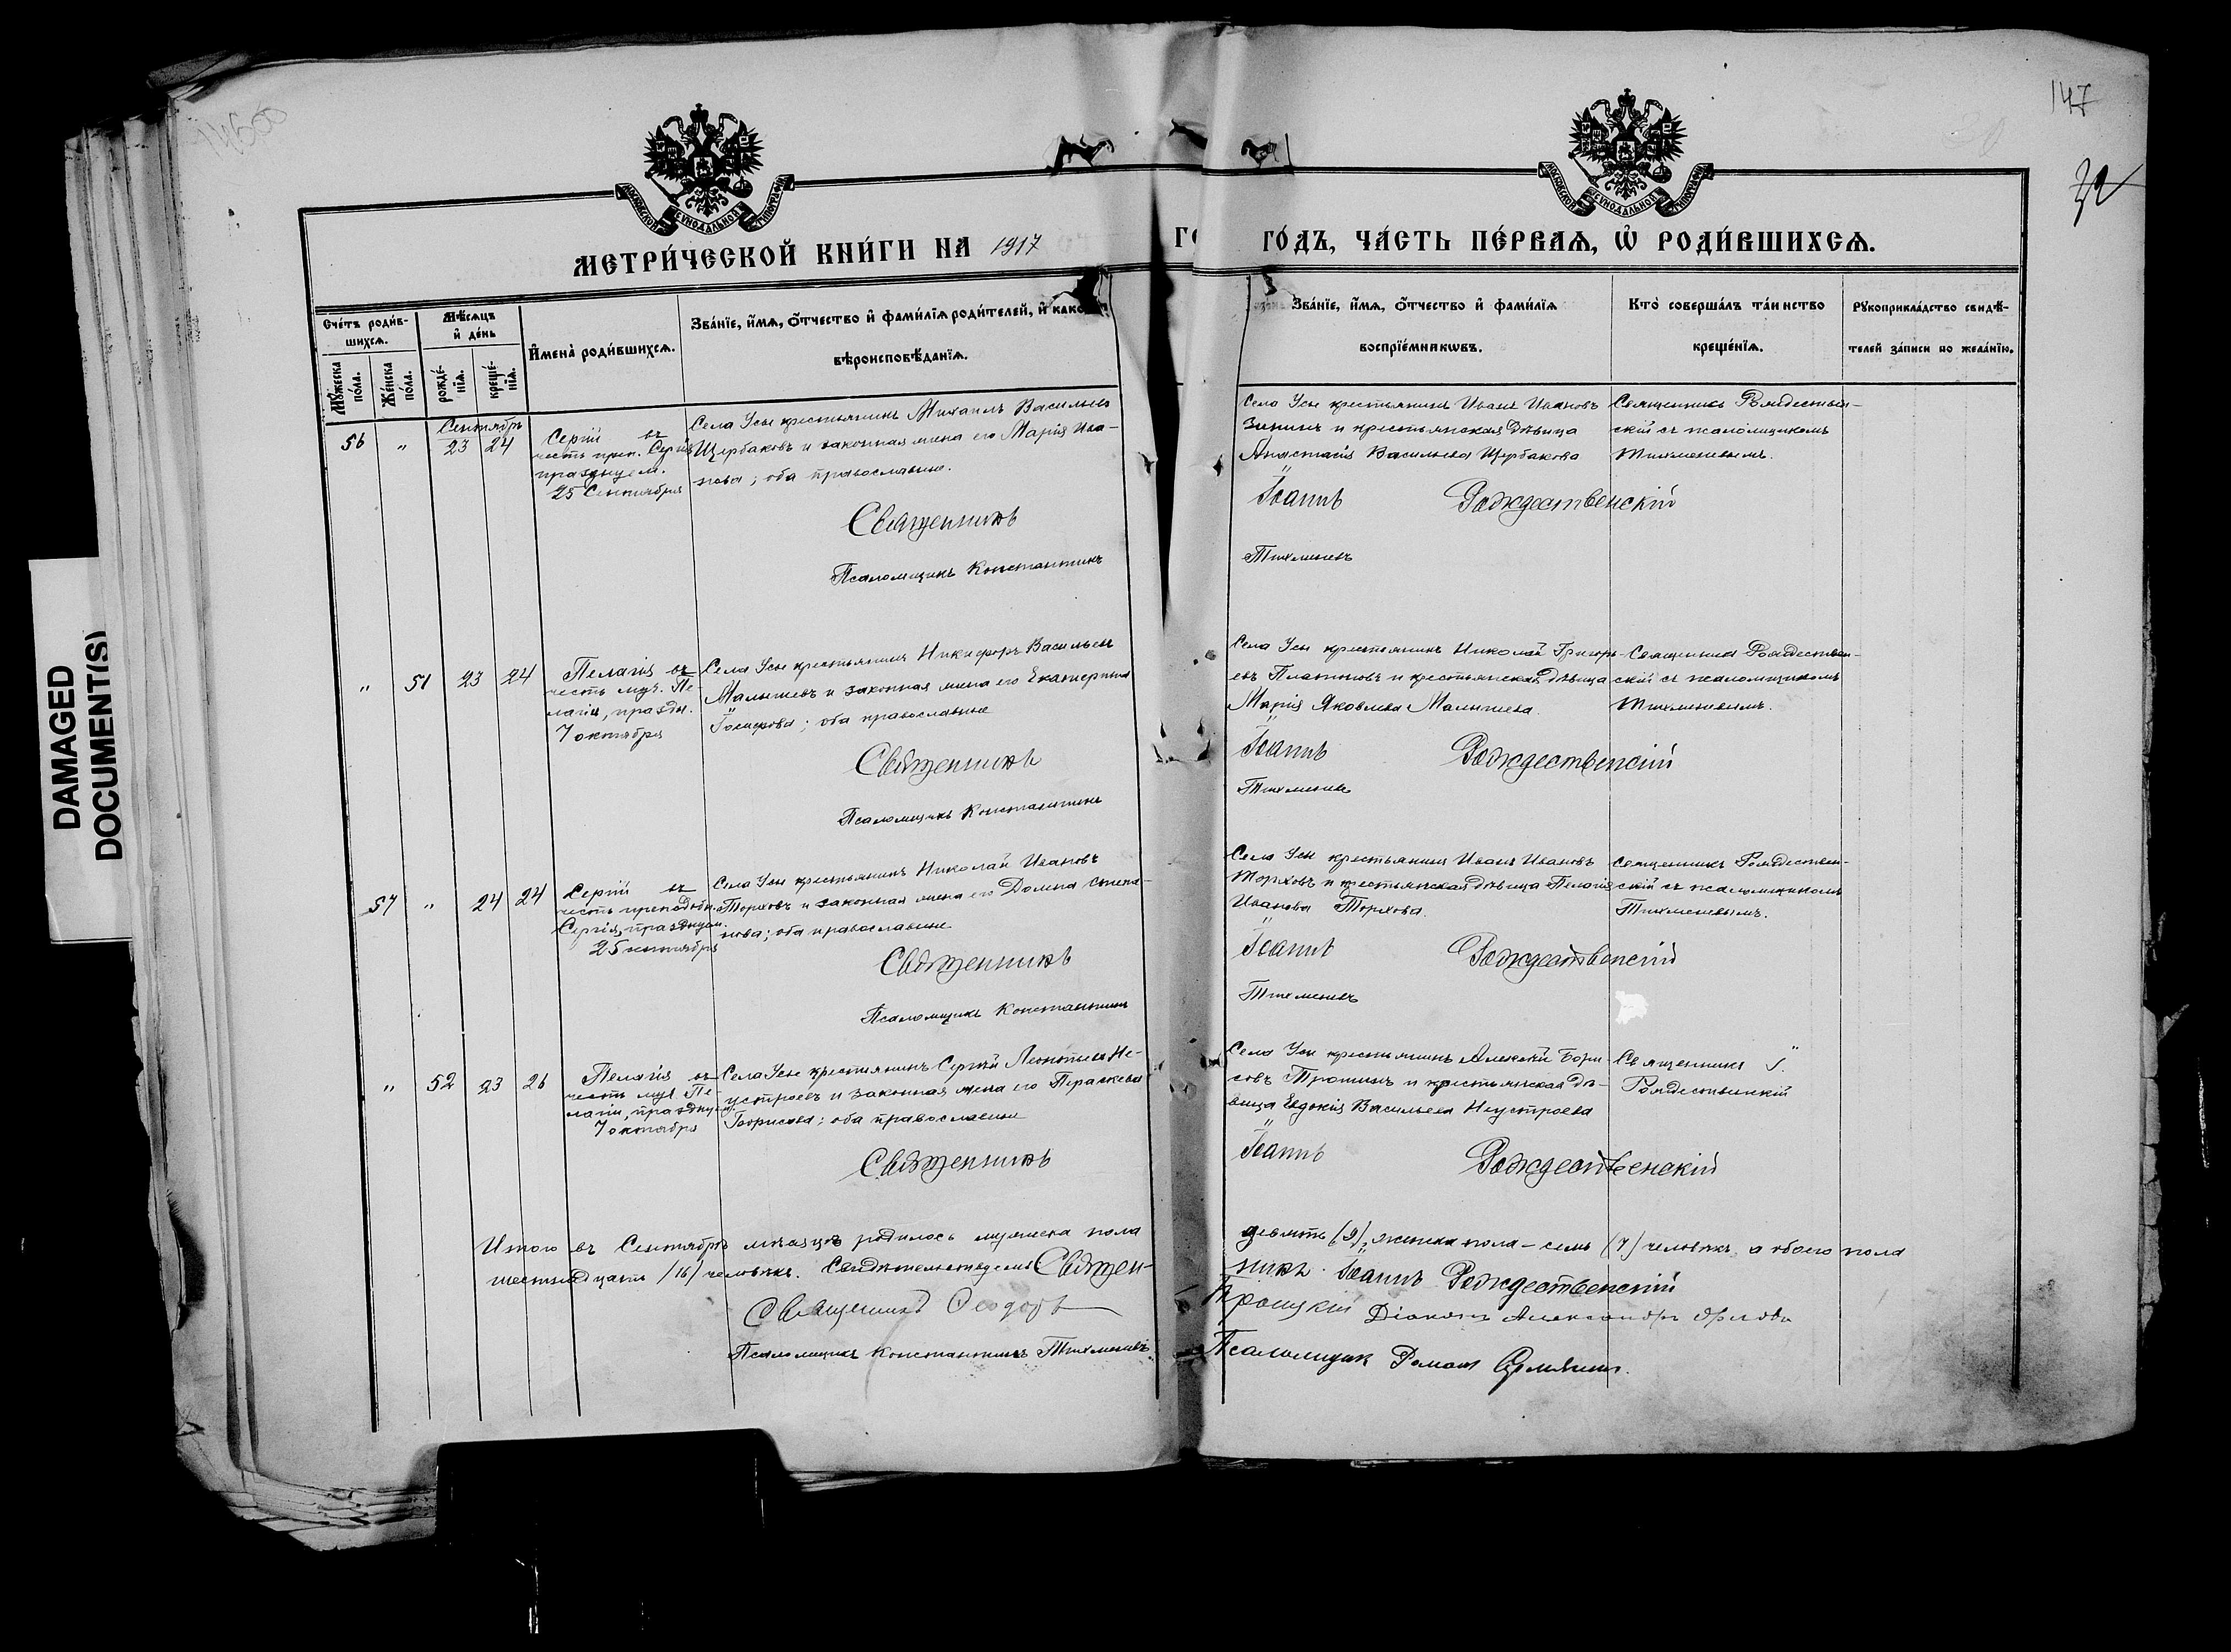 147
32
МОСКОВСКОЙ СѴНОДАЛЬНОЙ ТИПОГРАФІИ
МОСКОВСКОЙ СѴНОДАЛЬНОЙ ТИПОГРАФІИ
МЕТРИ́ЧЕСКОЙ КНИ́ГИ НА 1917
ГО́ДЪ, ЧА́СТЬ ПЕ́РВАѦ, Ѡ҆ РОДИ́ВШИХСѦ.
Сче́тъ роди́в-
шихсѧ.
Мꙋ́жеска по́ла.
Же́нска по́ла.
Мѣ́сѧцъ
и҆ де́нь
рожде́-
нїѧ.
креще́-
нїѧ.
И҆мена̀ роди́вшихсѧ.
Зва́нїе, и҆́мѧ, ѻ҆́тчество и҆ фами́лїѧ роди́телей, и҆ како
вѣроисповѣ́данїѧ.
Зва́нїе, и҆́мѧ, ѻ҆́тчество и҆ фами́лїѧ
воспрїе́мникѡвъ.
Кто̀ соверша́лъ та́инство
креще́нїѧ.
Рꙋкоприкла́дство свидѣ́-
телей за́писи по жела́нїю.
Сентябрь
56 " 23 24
Сергій въ
честь преп. Сергія
празднуем.
25 Сентября
Села Усы крестьянинъ Михаилъ Васильевъ
Щербаковъ и законная жена его Марія Ива-
нова; оба православные.
Священникъ
Псаломщикъ Константинъ
Села Усы крестьянинъ Иванъ Ивановъ
Зининъ и крестьянская дѣвица
Анастасія Васильева Щербакова
Іоаннъ Рождественскій
Тихменевъ
Священникъ Рождествен-
скій съ псаломщикомъ
Тихменевымъ.
" 51 23 24
Пелагія въ
честь муч. Пе-
лагіи, праздн.
7 октября
Села Усы крестьянинъ Никифоръ Васильевъ
Малышевъ и законная жена его Екатерина
оба православные
Священникъ
Псаломщикъ Константинъ
Села Усы крестьянинъ Николай Григорь-
евъ Платоновъ и крестьянская дѣвица
Марія Яковлева Малышева.
Іоаннъ Рождественскій
Тихменевъ
Священникъ Рождествен-
скій съ псаломщикомъ
Тихменевымъ.
57 " 24 24
Сергій въ
честь преподобн.
Сергія, празднуем.
25 сентября
Села Усы крестьянинъ Николай Ивановъ
Торховъ и законная жена его Домна Степа-
нова; оба православные
Священникъ
Псаломщикъ Константинъ
Села Усы крестьянинъ Иванъ Ивановъ
Торховъ и крестьянская дѣвица Пелагія
Иванова Торхова.
Іоаннъ Рождественскій
Тихменевъ
Священникъ Рождествен-
скій съ псаломщикомъ
Тихменевымъ.
" 52 23 26
Пелагія въ
честь муч. Пе-
лагіи, празднуем.
7 октября
Села Усы крестьянинъ Сергѣй Леонтьевъ Не-
устроевъ и законная жена его Параскева
Борисова; оба православные
Священникъ
Села Усы крестьянинъ Алексѣй Бори-
совъ Тронинъ и крестьянская дѣ-
вица Евдокія Васильева Неустроева
Іоаннъ Рождественскій
Священникъ І.
Рождественскій
Итого въ Сентябрѣ мѣсяцѣ родилось мужеска пола
девять (9), женска пола – семь (7) человѣкъ, а обоего пола
шестнадцать (16) человѣкъ. Свидѣтельствуемъ: Священ-
никъ Іоаннъ Рождественскій
Священникъ Ѳеодоръ
Троицкій Діаконъ Александръ Орловъ
Псаломщикъ Константинъ Тихменевъ.
Псаломщикъ Романъ
DAMAGED
DOCUMENT(S)